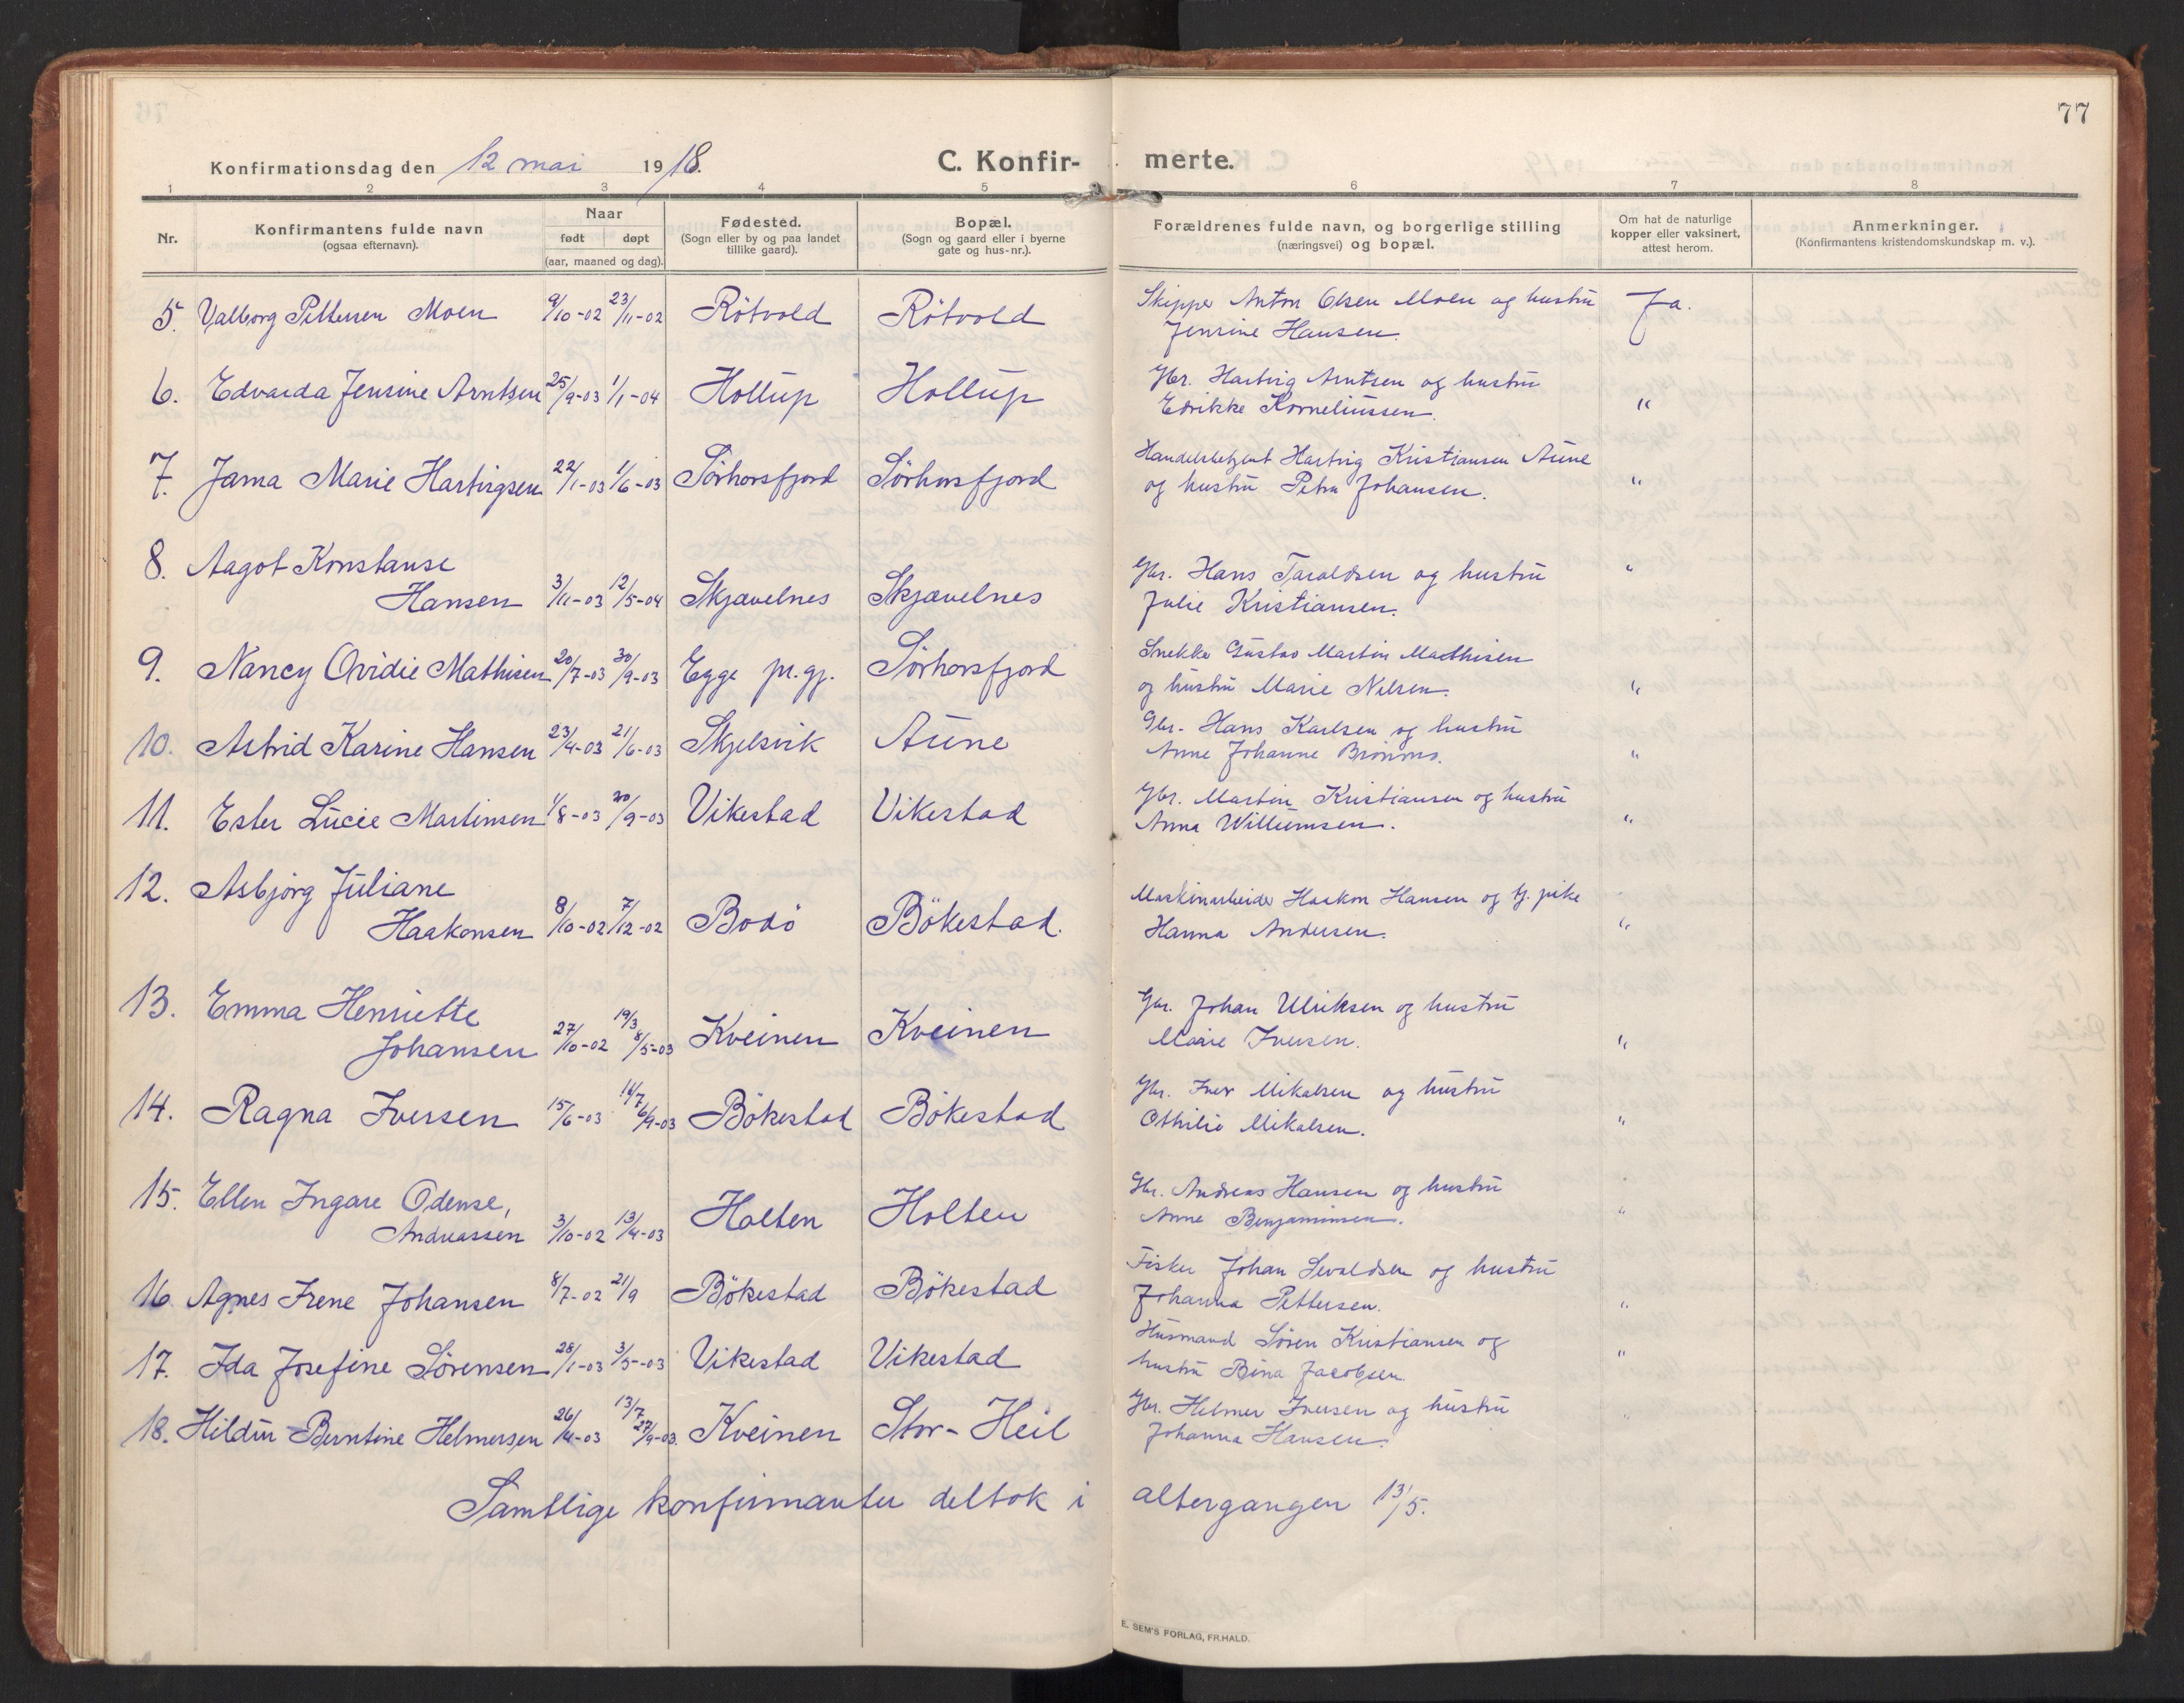 77
Konfirmationsdag den 12 mai 1918.
C. Konfir- merte.
1 2 3 4 5 6 7 8
Nr.
Konfirmantens fulde navn
(ogsaa efternavn).
Naar
født døpt
(aar, maaned og dag).
Fødested.
(Sogn eller by og paa landet
tillike gaard).
Bopæl.
(Sogn og gaard eller i byerne
gate og hus-nr.).
Forældrenes fulde navn, og borgerlige stilling
(næringsvei) og bopæl.
Om hat de naturlige
kopper eller vaksinert,
attest herom.
Anmerkninger.
(Konfirmantens kristendomskundskap m. v.).
5. Valborg Pettersen Moen 9/10-02 23/11-02 Rötvold Rötvold Skipper Anton Olsen Moen og hustru Ja.
Jensine Hansen.
6. Edvarda Jensine Arntsen 25/9-03 1/1-04 Hollup Hollup Gbr. Hartvig Arntsen og hustru
Edrikke Korneliussen. "
7. Jama Marie Hartvigsen 22/1-03 1/6-03 Sörhorsfjord Sörhorsfjord Handelsbetjent Hartvig Kristiansen Aune
og hustru Petra Johansen. "
8. Aagot Konstanse
Hansen 3/11-03 12/5-04 Skjævelnes Skjævelnes Gbr. Hans Taraldsen og hustru "
Julie Kristiansen.
9. Nancy Ovidie Mathisen 20/7-03 30/9-03 Egge pr.gj. Sörhorsfjord Snekker Gustav Martin Mathisen
og hustru Marie Nilsen. "
10. Astrid Karine Hansen 23/4-03 21/6-03 Skjelsvik Aune Gbr. Hans Karlsen og hustru
Anne Johanne Brönmo. "
11. Ester Lucie Martinsen 1/8-03 20/9-03 Vikestad Vikestad Gbr. Martin Kristiansen og hustru
Anna Willumsen. "
12. Asbjörg Juliane
Haakonsen 8/10-02 7/12-02 Bodö Bökestad. Maskinarbeider Haakon Hansen og tj. pike
Hanna Andersen. "
13. Emma Henriette
Johansen 27/10-02 19/3 8/5-03 Kveinen Kveinen Gbr. Johan Ulriksen og hustru
Marie Iversen. "
14. Ragna Iversen 15/6-03 16/7 6/9-03 Bökestad Bökestad Gbr. Iver Mikalsen og hustru
Othilie Mikalsen. "
15. Ellen Ingare Odense,
Andreassen 3/10-02 13/4-03 Holten Holten Gbr. Andreas Hansen og hustru
Anne Benjaminsen. "
16. Agnes Irene Johansen 8/7-02 21/9 Bökestad Bökestad Fisker Johan Sevaldsen og hustru
Johanna Pettersen. "
17. Ida Josefine Sörensen 28/1-03 3/5-03 Vikestad Vikestad Husmand Sören Kristiansen og
hustru Bina Jacobsen. "
18. Hildur Berntine Helmersen 26/4-03 13/7 27/9-03. Kveinen Stor-Heil Gbr. Helmer Iversen og hustru
Johanna Hansen. "
Samtlige konfirmanter deltok i altergangen 13/5.
E. SEM'S FORLAG, FR.HALD.